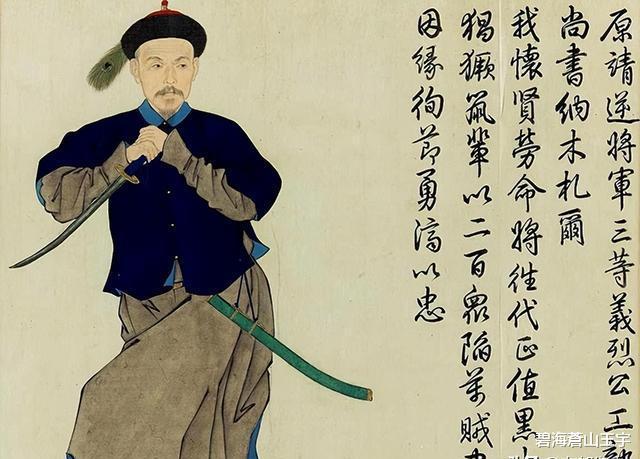 原靖逆將軍三等義烈公工部
尚書納木札爾
我懷賢勞命將往代正值黑
猖獗鼠輩以二百眾陷萬賊
因緣徇節勇濟以忠
碧海蒼山玉宇